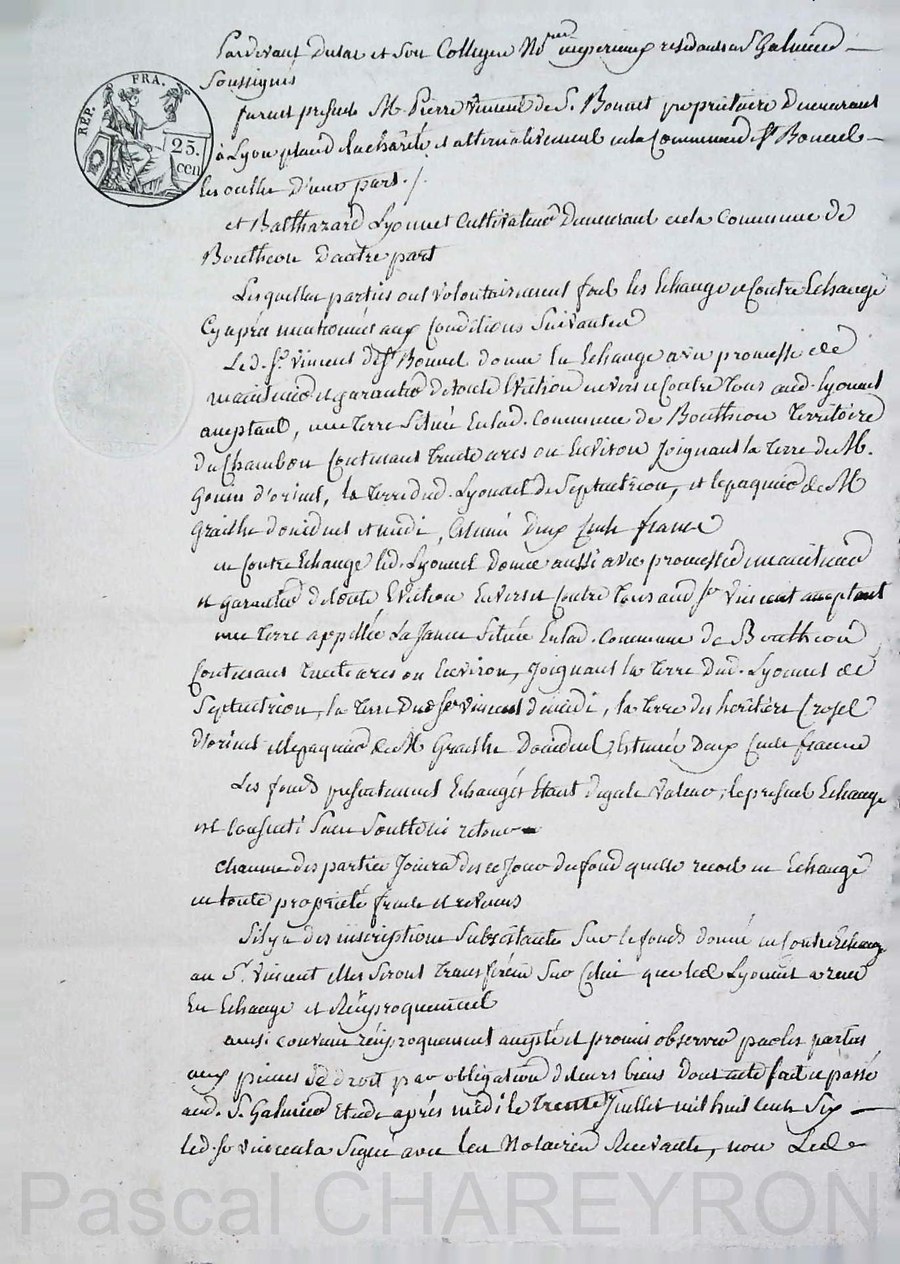 Pardevant Dusac et Son Collegue No.res imperiaux residants a St Galmier
Soussignés
RÉP. FRA.
25. cen
furent presents M. Pierre Vincent de St. Bonnet proprietaire demeurant
à Lyon place de la charité et alternativement en la Commune de St Bonnet
les oulles d'une part. /.
et Balthazard Lyonnet Cultivateur demeurant en la Commune de
Bouthéon d'autre part
Lesquelles parties ont volontairement fait les Echange et Contre Echange
Cy après mentionnés aux Conditions Suivantes
Led. Sr. Vincent de St Bonnet donne En Echange avec promesse de
maintenir et garantir de toute Eviction envers et Contre tous aud. Lyonnet
acceptant, une terre Située En lad. Commune de Bouthéon Territoire
du Chambon Contenant trente ares ou Environ Joignant la terre de M.
d'orient, la terre dud. Lyonnet de Septentrion, et le paquier de M
d'occident et midi, Estimée deux Cents francs
en Contre Echange led. Lyonnet donne aussi avec promesse de maintenir
et garantir de toute Eviction Envers et Contre tous aud Sr Vincent acceptant
une terre appellée La Située En lad. Commune de Bouthéon
Contenant trente ares ou Environ, Joignant la terre dud. Lyonnet de
Septentrion, la terre dud Sr Vincent de midi, la terre des héritiers Crozet
d'orient et le paquier de M d'occident, Estimée deux Cents francs
Les fonds presentement Echangés Etant d'egale Valeur, le present Echange
est Consenti Sans Soulte ni retour
chacune des parties Jouira des ce Jour du fond quelle recoit en Echange
en toute propriété fruits et revenus
S'il y a des inscriptions Subsistantes Sur le fonds donné en Contre Echange
au Sr. Vincent elles Seront transférées Sur Celui que led Lyonnet a remis
En Echange et Réciproquement
ainsi convenu réciproquement accepté et promis observer par les parties
aux peines de droit par obligation de leurs biens dont acte fait et passé
aud. St. Galmier Etude après midi le trente Juillet mil huit Cent Six
led. Sr Vincent a Signé avec les Notaires Recevants, non Led
Pascal CHAREYRON